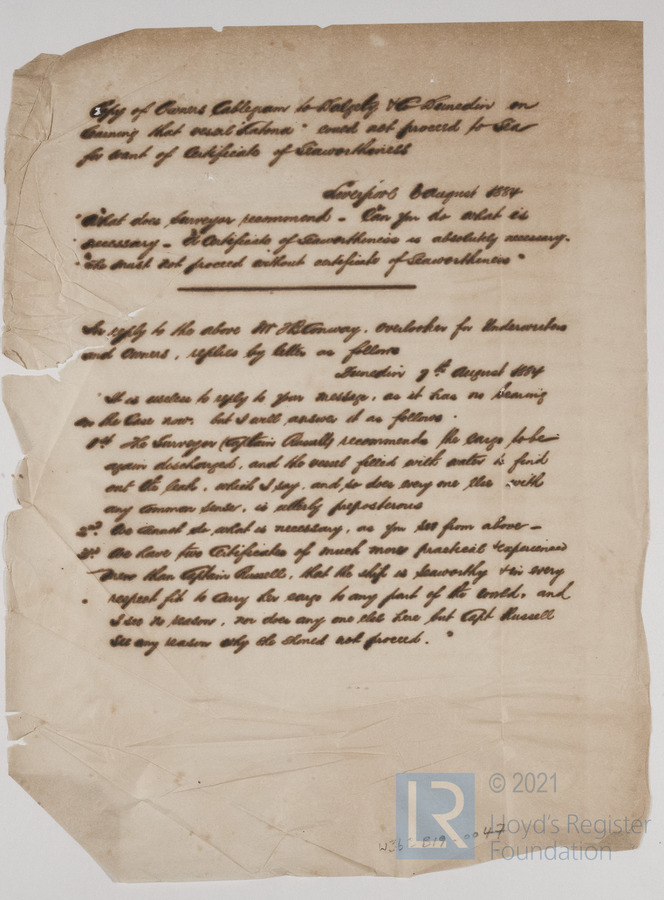 Copy of Owners Cablegram to Dalgety & Co Dunedin on
learning that vessel "Katona" could not proceed to Sea
for want of Certificate of Seaworthiness
Liverpool 8 August 1884
"What does Surveyor recommend - Can you do what is
necessary - Certificate of Seaworthiness is absolutely necessary.
"She must not proceed without certificate of Seaworthiness"
In reply to the above Mr Conway, Overlooker for Underwriters
and Owners, replies by letter as follows
Dunedin 9th August 1884
"It is useless to reply to your message, as it has no bearing
on the Case now, but I will answer it as follows.
1st The Surveyor (Captain Russell) recommends the cargo to be
again discharged, and the vessel filled with water to find
out the leak, which I say, and so does every one else with
any common sense, is utterly preposterous
2nd We cannot do what is necessary, as you see from above -
3rd We have two Certificates of much more practical & experienced
men than Captain Russell, that the ship is seaworthy & in every
respect fit to carry her cargo to any part of the world, and
I see no reason, nor does any one else here but Capt Russell
see any reason why she should not proceed."
LR © 2021
Lloyd's Register
Foundation
0047